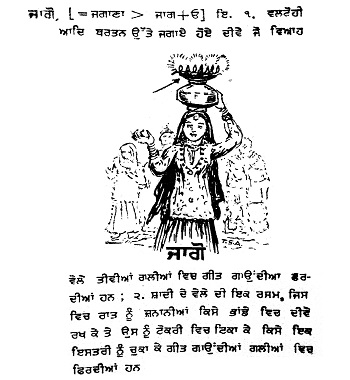 ਜਾਗੋ, [=ਜਗਾਣਾ > ਜਾਗ+ਓ] ਇ. ੧. ਵਲਟੋਹੀ
ਆਦਿ ਬਰਤਨ ਉੱਤੇ ਜਗਾਏ ਹੋਏ ਦੀਵੇ ਜੋ ਵਿਆਹ
ਜਾਗੋ
ਵੇਲੇ ਤੀਵੀਆਂ ਗਲੀਆਂ ਵਿਚ ਗੀਤ ਗਾਉਂਦੀਆ ਫਰ-
ਦੀਆਂ ਹਨ ; ੨. ਸ਼ਾਦੀ ਦੇ ਵੇਲੇ ਦੀ ਇਕ ਰਸਮ, ਜਿਸ
ਵਿਚ ਰਾਤ ਨੂੰ ਜ਼ਨਾਨੀਆਂ ਕਿਸੇ ਭਾਂਡੇ ਵਿਚ ਦੀਵੇ
ਰਖ ਕੇ ਤੇ ਉਸ ਨੂੰ ਟੋਕਰੀ ਵਿਚ ਟਿਕਾ ਕੇ ਕਿਸੇ ਇਕ
ਇਸਤਰੀ ਨੂੰ ਚੁਕਾ ਕੇ ਗੀਤ ਗਾਉਂਦੀਆਂ ਗਲੀਆਂ ਵਿਚ
ਫਿਰਦੀਆਂ ਹਨ